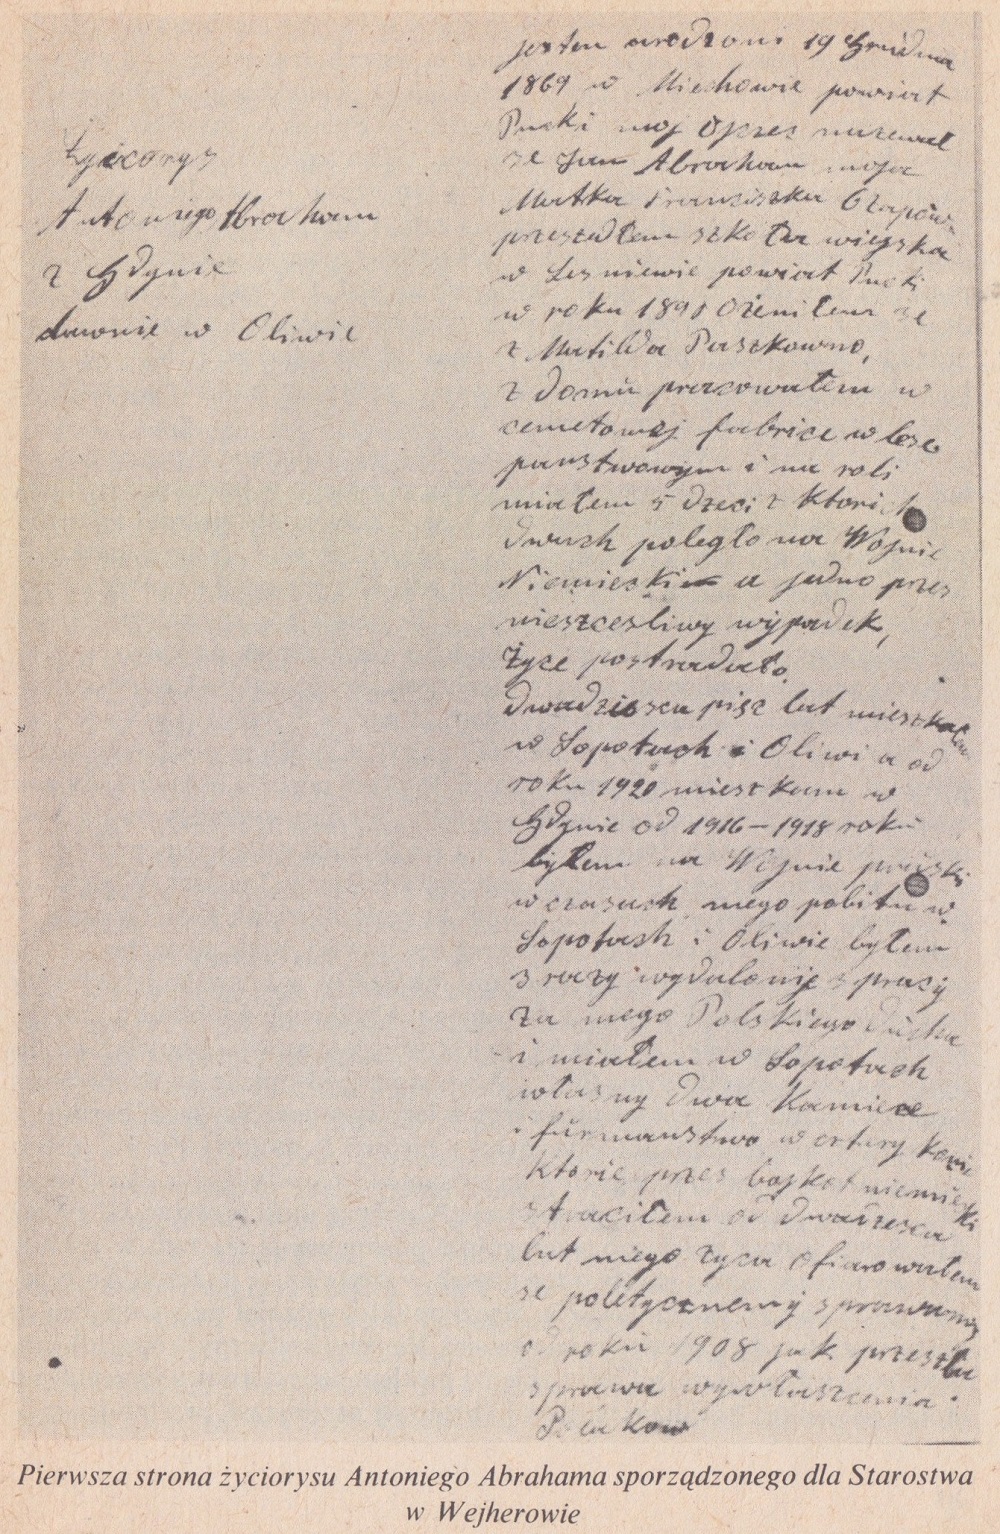 Życorys
Antoniego Abraham
z Gdynie
dawnie w Oliwie
jestem urodzoni 19 Grudnia
1869 w Miechowie powiat
Pucki moj Ojczec nazewal
se Jan Abraham moja
Matka Franciszka Czapów
przeszedłem szkoła wiejska
w Lesniewie powiat Pucki
w roku 1891 Ożeniłem se
z Matilda Paszkowno,
z domu pracowałem w
cemetowej fabrice w lese
panstwowym i na roli
miałem 5 dzeci z Ktorich
dwuch poległo na Wojnie
Niemieckie a jedno przes
nieszcesliwy wypadek,
życe postradało.
dwadziesca pięc lat mieszkałem
w Sopotach i Oliwi a od
roku 1920 mieszkam w
Gdynie od 1916 – 1918 roku
byłem na Wojnie pruski
w czasach mego pobitu w
Sopotach i Oliwie byłem
3 razy wydalonij s pracy
za mego Polskiego ducha
i miałem w Sopotach
własny dwa Kamiece
i furmanstwo w cztery konie
Ktorie przes bojkot niemiecki
straciłem od dwadzesca
lat mego życa ofiarowałem
se poletycznemy sprawamy
od roku 1908 jak przeszła
sprawa wywłaszcenia
Polakow
Pierwsza strona życiorysu Antoniego Abrahama sporządzonego dla Starostwa
w Wejherowie